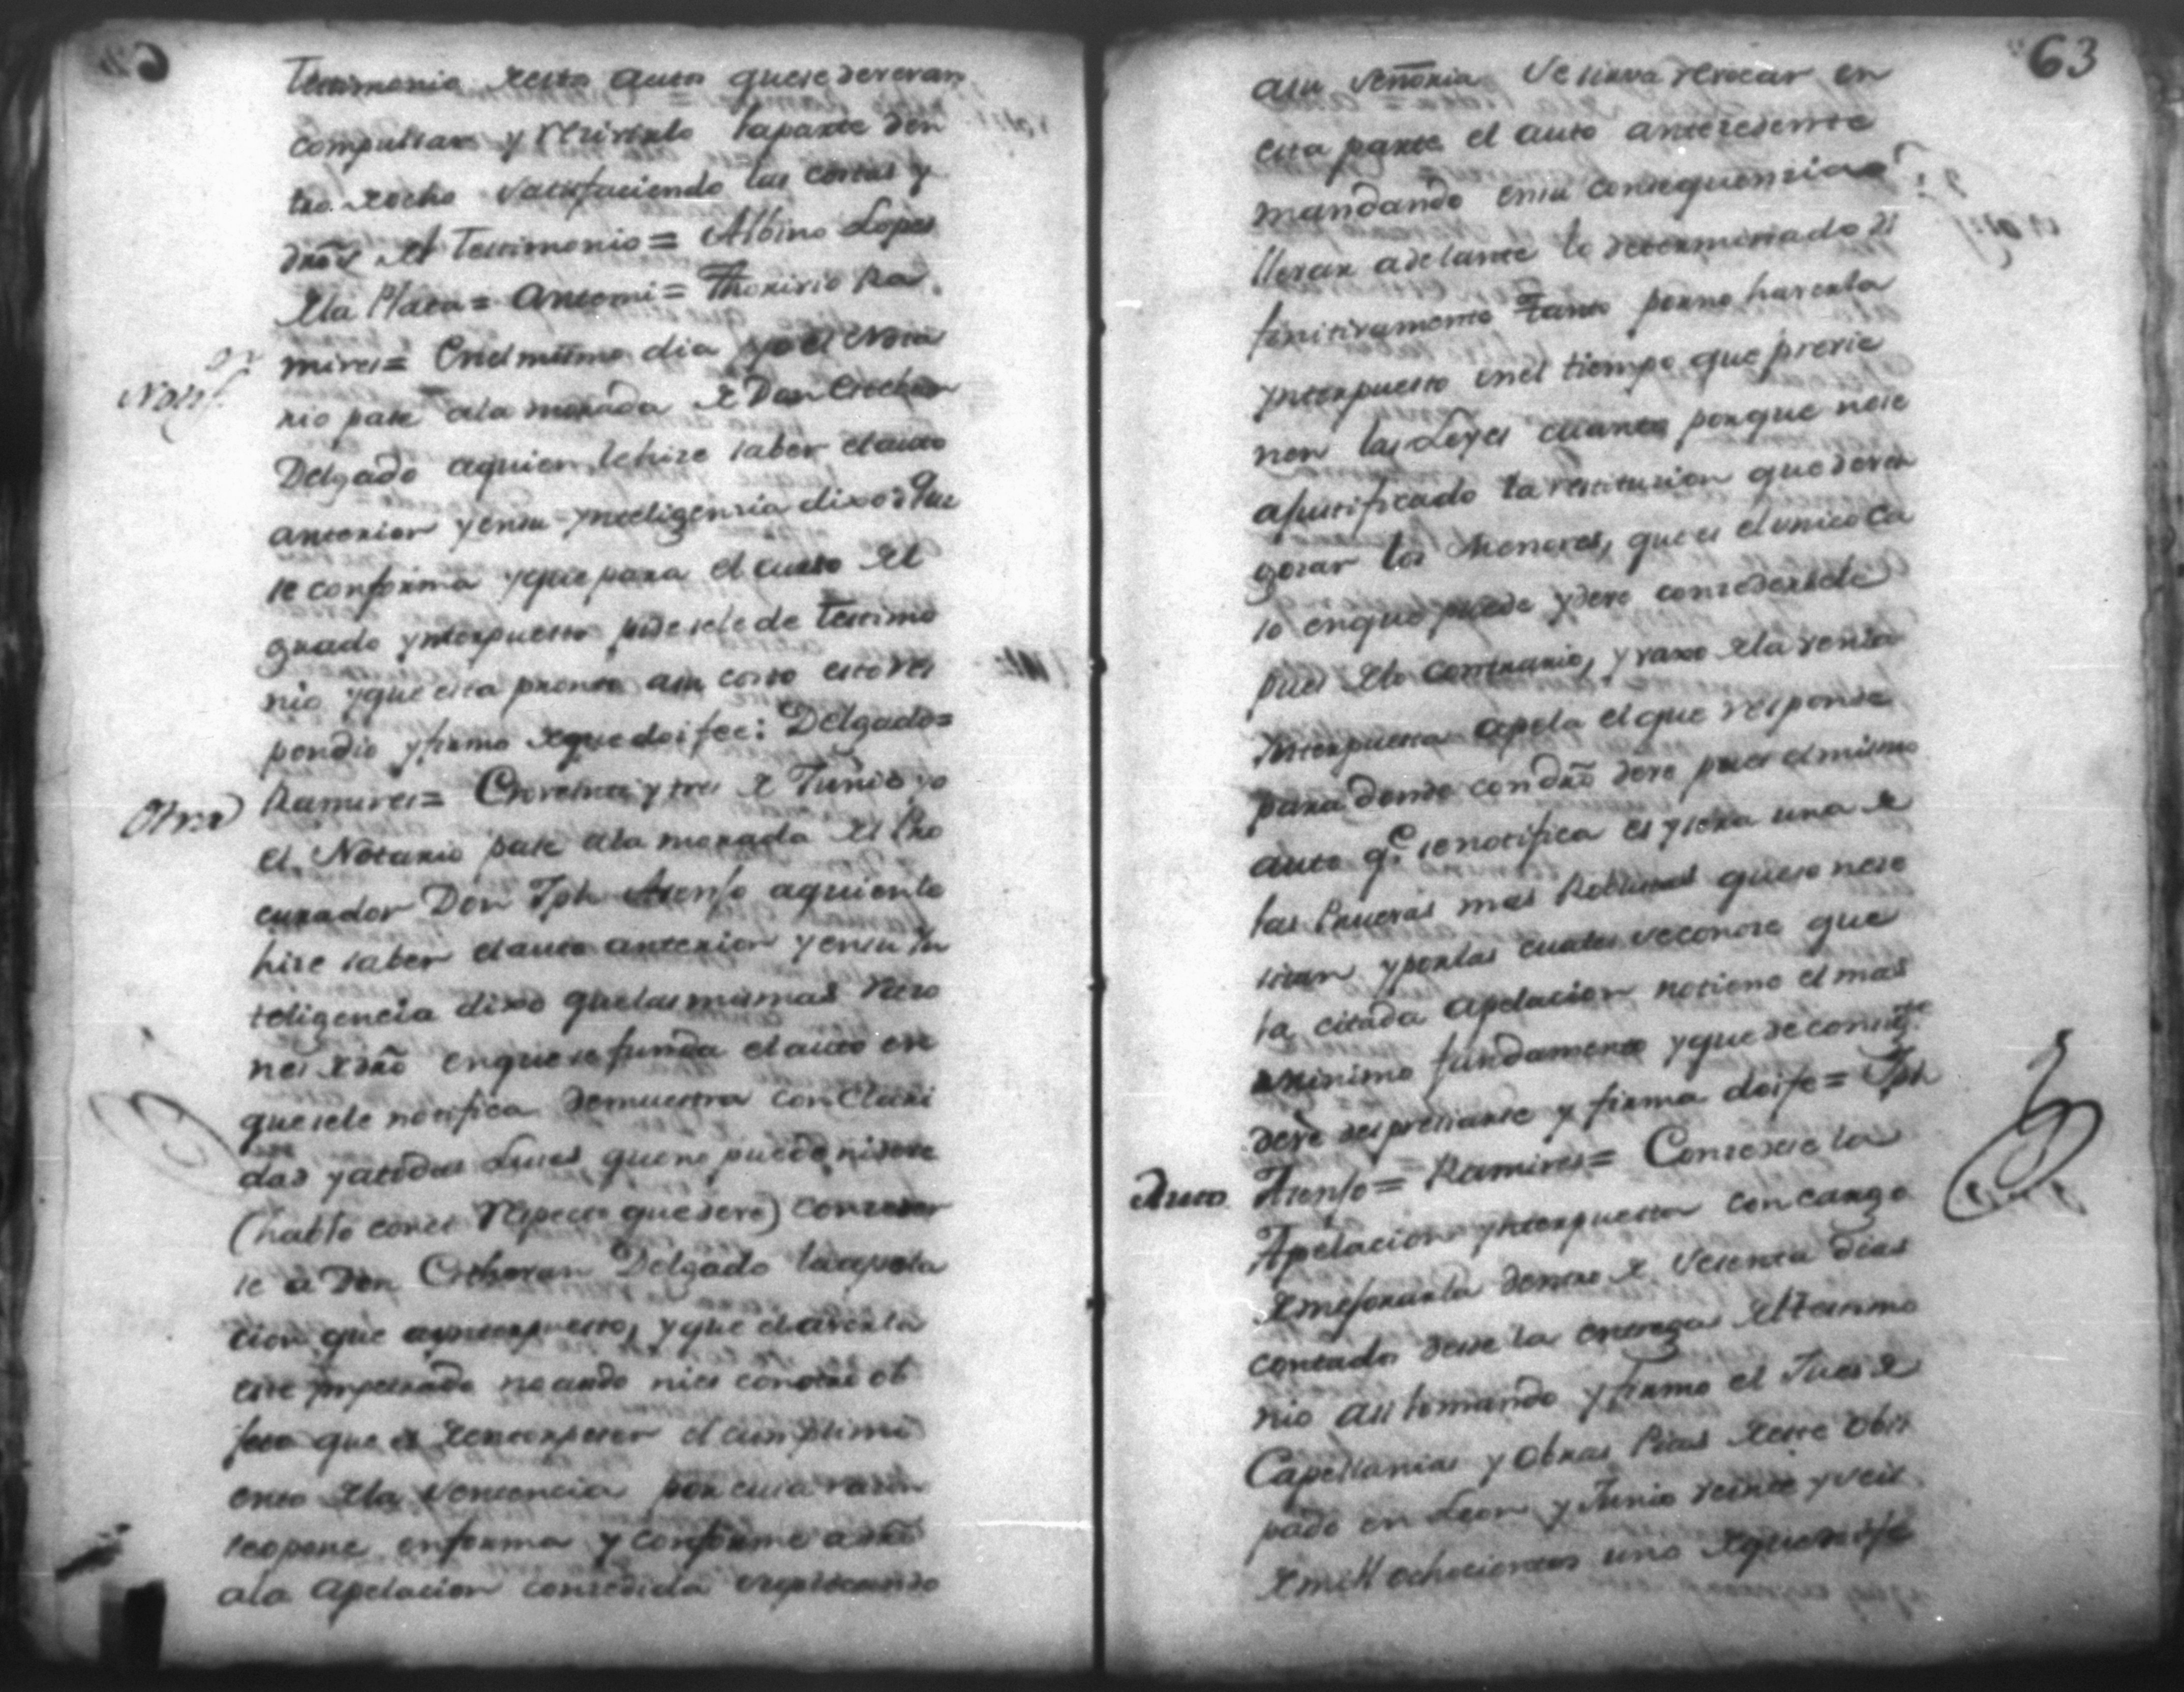 Testimonio de estos autos que se deveran
compulsar y recivirlo la parte den
tro. de ocho satisfaciendo las costas y
dros del Testimonio= Albino Lopes
de la Plata= Antemi= Thorivio Ra
Notif.on
mires= En el mismo dia yo el Nota
rio pase a la morada de Don Estevan
Delgado aquien le hize saber el auto
anterior y en su ynteligenzia dixo: Que
se conforma y que para el curso del
grado ynterpuesto pide sele de Testimo
nio y que esta pronto a su costo esto res
pondio y firmo de que doi fee: Delgado=
Otra
Ramires= En veinte y tres de Junio yo
el Notario pase a la morada del Pro
curador Don Jph Asenso aquien le
hize saber el auto anterior y en su In
teligencia dixo que las mismas razo
nes de dro en que se funda el auto en
que sele notifica demuestra con Clari
dad y a todas Luces que no puede ni deve
(hablo con el respecto que devo) conzeder
se a Don Estevan Delgado la apela
cion que a ynterpuesto, y que el averla
este no ha sido ni es con otro ob
jeto que el de entorpeser el cumplimi
ento de la sentencia por cuia razon
se opone en forma y conforme a dro
a la apelacion conzedida suplicando
63
a su Señoria se sirva revocar en
esta parte el auto anteredente
mandando en su consequenzia
llevar adelante lo determinado di
finitivamente Tanto por no haverla
ynterpuesto en el tiempo que previe
nen las Leyes cuanto porque no se
a justificado la restituzion que deven
gozar los Menores, que es el unico ca
so en que puede y deve conzedersele
pues de lo contrario, y vaxo de la venia
ynterpuesta apela el que responde
para donde con dro deve pues el mismo
auto q.e se notifica es y sera una de
las Pruevas mas Robustas que se nese
sitan y por las cuales se conoze que
la citada apelacion no tiene el mas
minimo fundamento y que de consig.te
deve despreciarse y firma doi fe= Jph
Auto
Asenso= Ramires= Conzedese la
Apelacion ynterpuesta con cargo
de mejorarla dentro de sesenta dias
contados desde la entrega del testimo
nio asi lo mando y firmo el Jues de
Capellanias y Obras Pias de este Obis
pado en Leon y Junio veinte y seis
de mill ochocientos uno de que doi fe